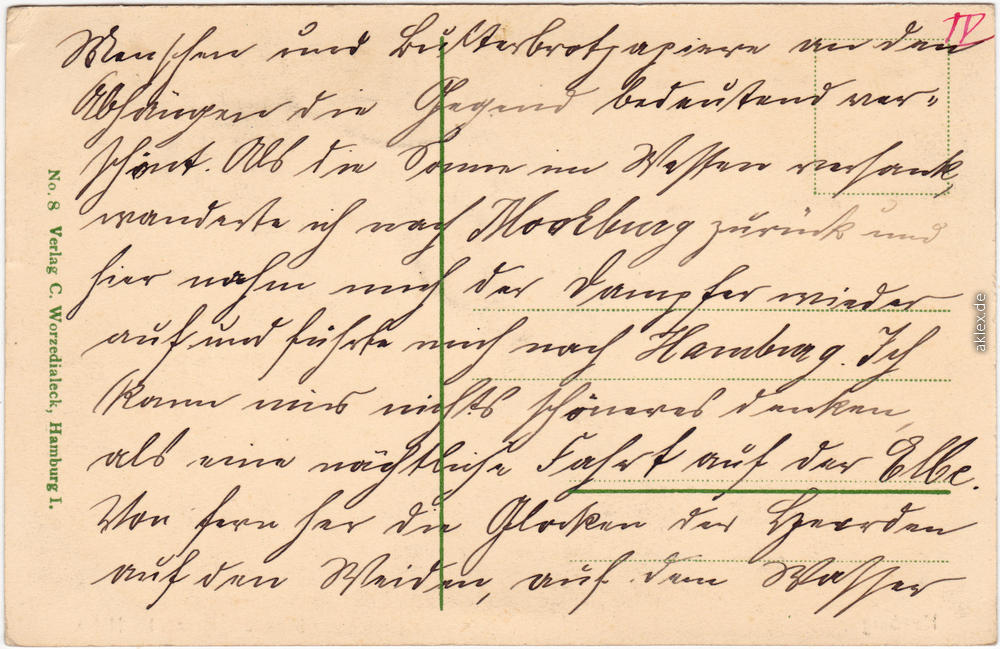 IV
Menschen und Butterbrotpapiere an den
Abhängen die Gegend bedeutend ver-
schönt. Als die Sonne im Westen versank,
wanderte ich nach Moorburg zurück und
hier nahm mich der Dampfer wieder
auf und führte mich nach Hamburg. Ich
kann mir nichts schöneres denken,
als eine nächtliche Fahrt auf der Elbe.
Von fern her die Glocken der Heerden
auf den Weiden, auf dem Wasser
No. 8 Verlag C. Worzedialeck, Hamburg I.
aklex.de